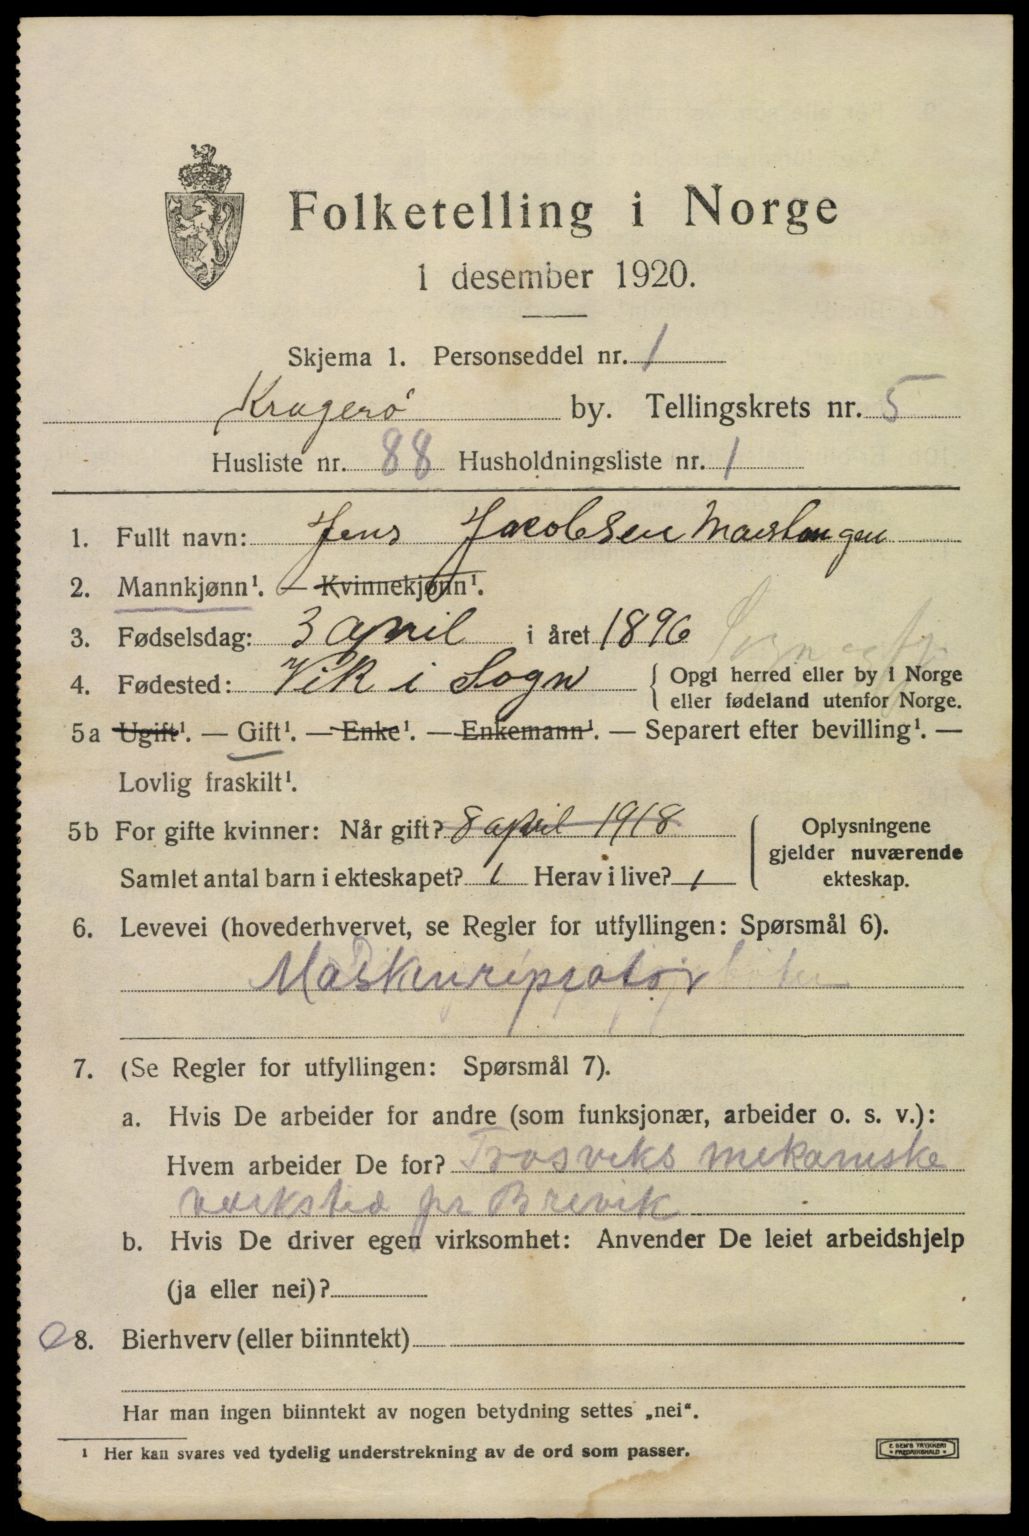 Folketelling i Norge
1 desember 1920.
Skjema 1. Personseddel nr. 1
Kragerø by. Tellingskrets nr. 5
Husliste nr. 88 Husholdningsliste nr. 1
1. Fullt navn: Jens Jacobsen
2. Mannkjønn¹. — Kvinnekjønn¹.
3. Fødselsdag: 3 april i året 1896
4. Fødested: Vik i Sogn { Opgi herred eller by i Norge
eller fødeland utenfor Norge.
5a Ugift¹. — Gift¹. — Enke¹. — Enkemann¹. — Separert efter bevilling¹. —
Lovlig fraskilt¹.
5b For gifte kvinner: Når gift? 8 april 1918
Samlet antal barn i ekteskapet? 1 Herav i live? 1
Oplysningene
gjelder nuværende
ekteskap.
6. Levevei (hovederhvervet, se Regler for utfyllingen: Spørsmål 6).
Maskinreparatør
7. (Se Regler for utfyllingen: Spørsmål 7).
a. Hvis De arbeider for andre (som funksjonær, arbeider o. s. v.):
Hvem arbeider De for? Trosviks mekaniske
værksted pr Brevik
b. Hvis De driver egen virksomhet: Anvender De leiet arbeidshjelp
(ja eller nei)?
8. Bierhverv (eller biinntekt)
Har man ingen biinntekt av nogen betydning settes „nei“.
¹ Her kan svares ved tydelig understrekning av de ord som passer.
E. SEM'S TRYKKERI
FREDRIKSHALD